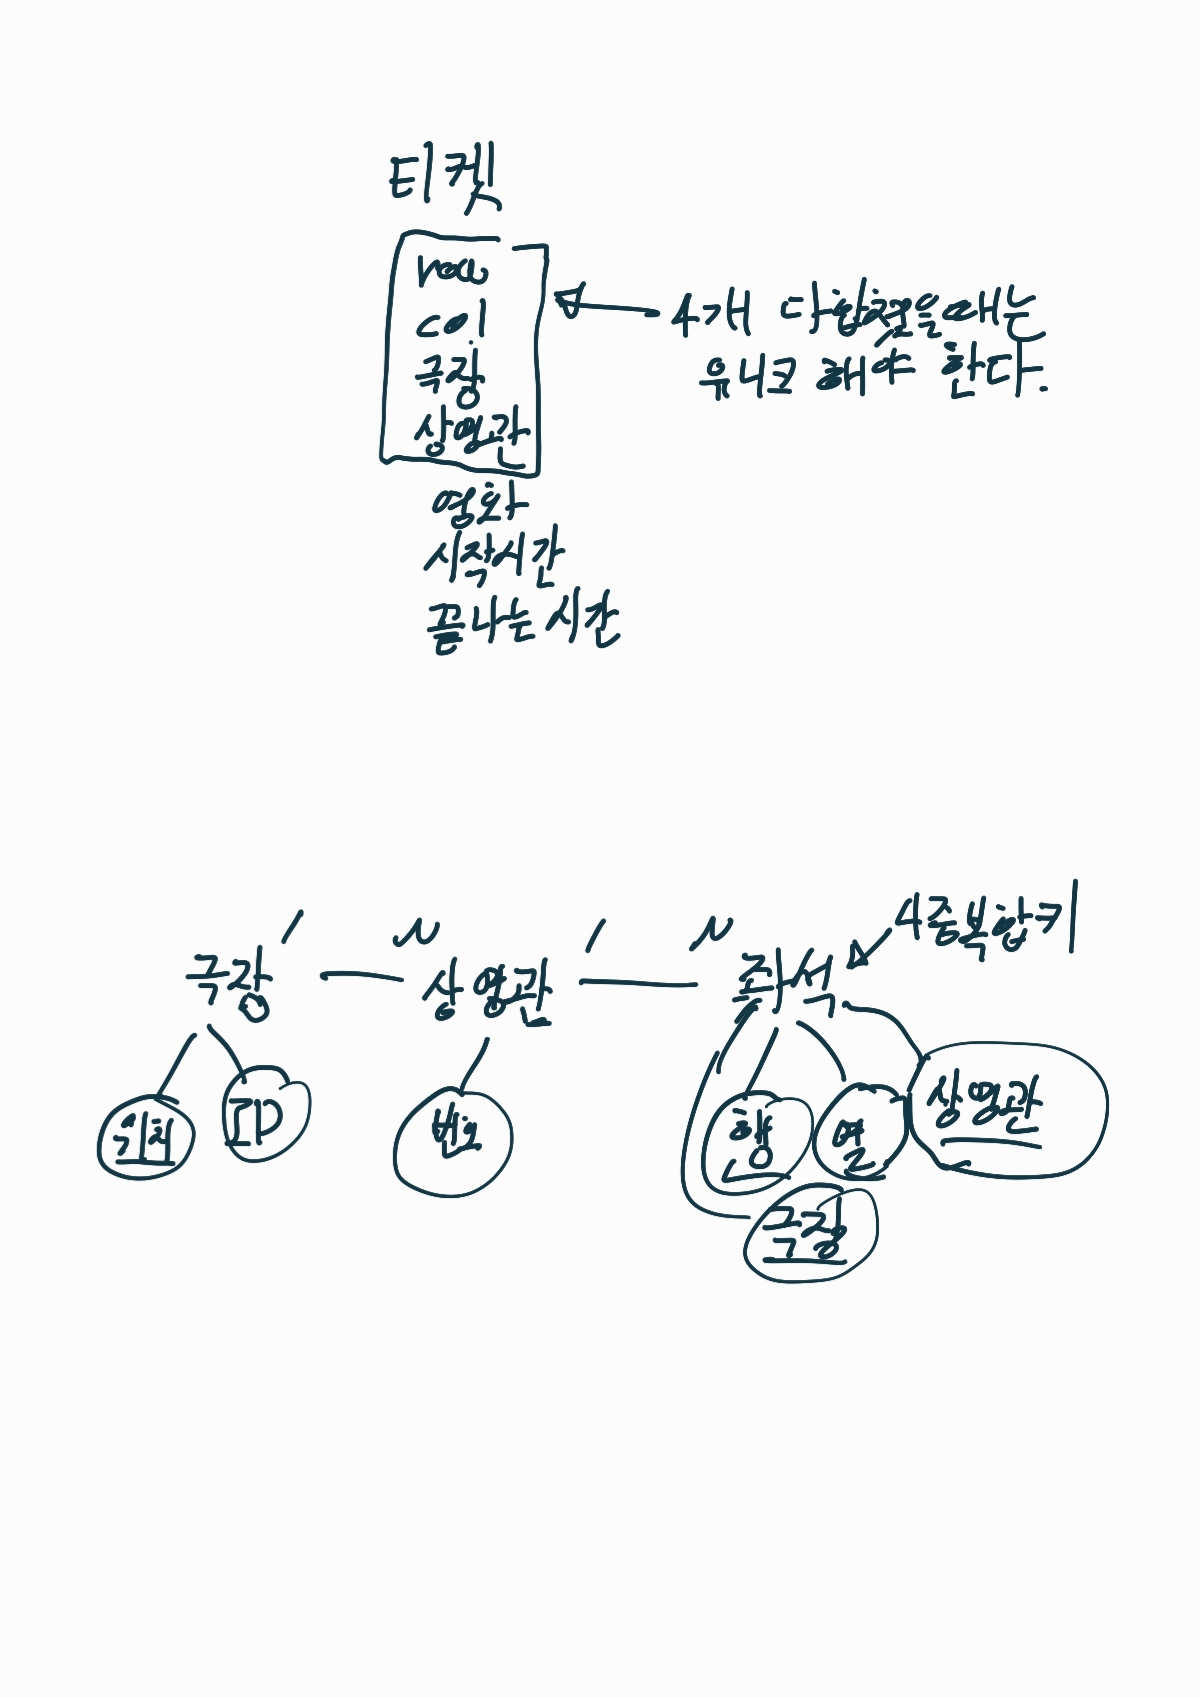 티켓
row
col
극장
상영관
영화
시작시간
끝나는 시간
4개 다 합쳤을때는
유니크 해야 한다.
1 N 1 N
4중복합키
극장 상영관 좌석
위치 ID 번호 행 열 상영관
극장